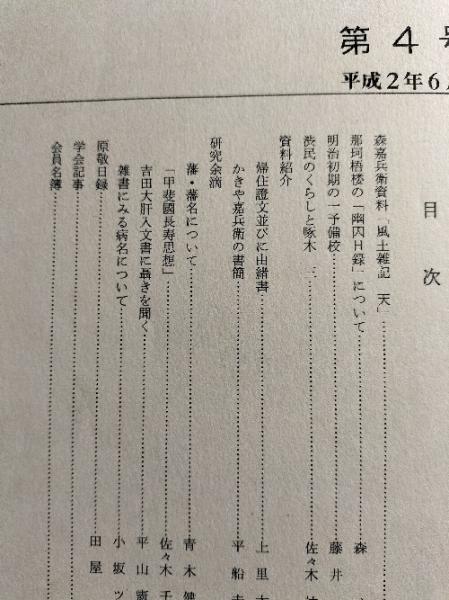 第4号
平成2年6
目次
森嘉兵衛資料「風土雑記 天」
那珂梧楼の「幽囚日録」について 森
明治初期の一予備校 藤井
渋民のくらしと啄木 三 佐々木
資料紹介
帰住證文並びに由緒書 上里
かきや嘉兵衛の書簡 平船
研究余滴
藩・藩名について 青木
「甲斐國長寿思想」 佐々木千
吉田大肝入文書に聶きを聞く 平山憲
雑書にみる病名について 小坂ッ
原敬日録 田屋
学会記事
会員名簿